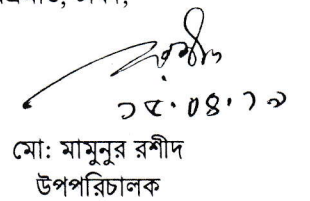 রশীদ
১৫.০৪.১৯
মো: মামুনুর রশীদ
উপপরিচালক